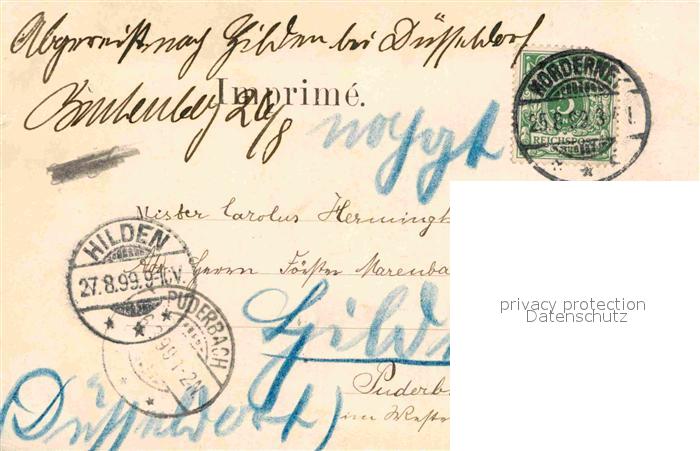 Abgereist nach Hilden bei Düsseldorf
Imprimé.
NORDERNEY
REICHSPOST
Mister Carolus Herming
HILDEN
27.8.99.9-10.V.
Herrn Förster Marenba
PUDERBACH
Hild
Puderb
im Weste
Düsseldorf)
privacy protection
Datenschutz